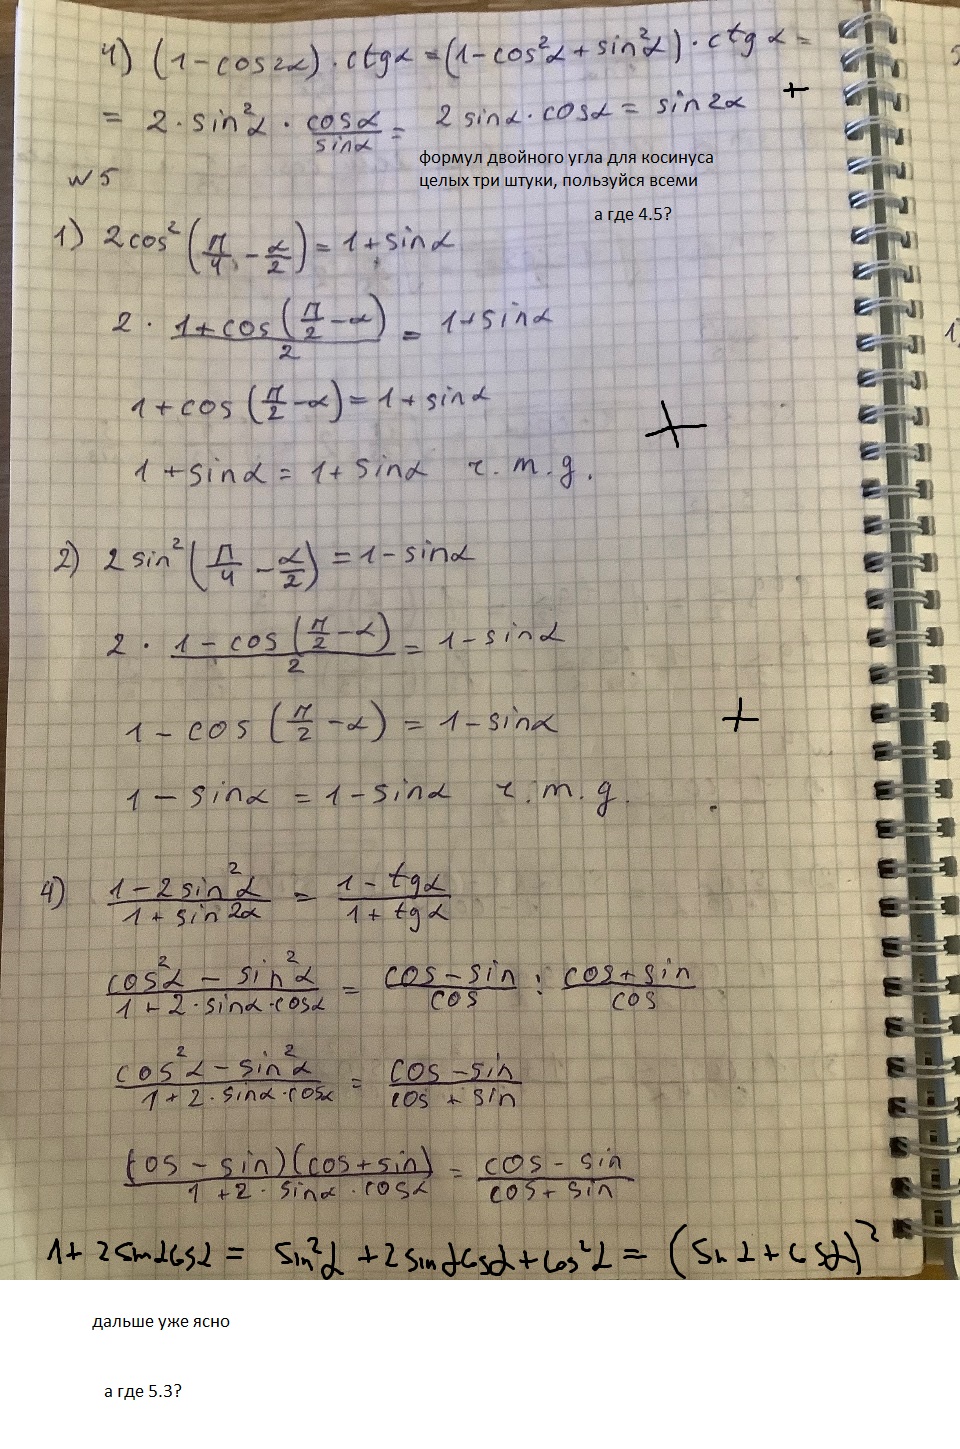 4) (1 - cos2α) · ctgα = (1 - cos²α + sin²α) · ctgα =
= 2 · sin²α · cosα/sinα = 2 sinα · cosα = sin2α +
формул двойного угла для косинуса
целых три штуки, пользуйся всеми
N5
а где 4.5?
1) 2cos²(π/4 - α/2) = 1 + sinα
2 · (1 + cos(π/2 - α))/2 = 1 + sinα
1 + cos(π/2 - α) = 1 + sinα
+
1 + sinα = 1 + sinα ч.т.д.
2) 2 sin²(π/4 - α/2) = 1 - sinα
2 · (1 - cos(π/2 - α))/2 = 1 - sinα
1 - cos(π/2 - α) = 1 - sinα +
1 - sinα = 1 - sinα ч.т.д.
4) (1 - 2sin²α)/(1 + sin2α) = (1 - tgα)/(1 + tgα)
(cos²α - sin²α)/(1 + 2 · sinα · cosα) = (cos - sin)/cos : (cos + sin)/cos
(cos²α - sin²α)/(1 + 2 · sinα · cosα) = (cos - sin)/(cos + sin)
(cos - sin)(cos + sin)/(1 + 2 · sinα · cosα) = (cos - sin)/(cos + sin)
1 + 2sinαcosα = sin²α + 2sinαcosα + cos²α = (sinα + cosα)²
дальше уже ясно
а где 5.3?